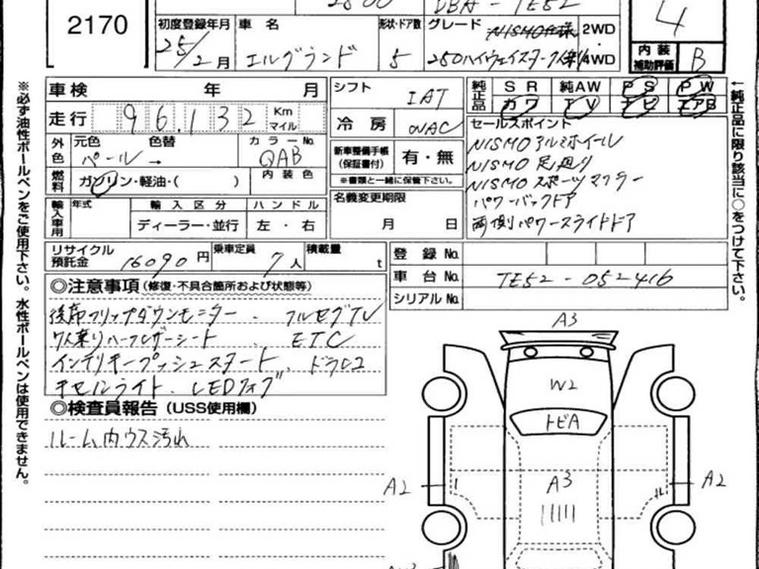 2500 DBA-TE52
2170
初度登録年月 車名 形状・ドア数 グレード NISMO仕様 2WD
25/2月 エルグランド 5 250ハイウェイスター 4WD
4
内装補助評価 B
車検 年 月
シフト IAT
純正品 SR 純AW PS PW
カワ TV ナビ エアB
走行 96,132 Km マイル
冷房 AAC
セールスポイント
外色 元色 色替 カラーNo.
パール→ QAB
新車整備手帳(保証書付) 有・無
※書類と一緒に保管下さい。
NISMOアルミホイール
NISMO足廻り
NISMOスポーツマフラー
パワーバックドア
両側パワースライドドア
燃料 ガソリン・軽油・( ) 内装色
輸入車用 年式 輸入区分 ハンドル
ディーラー・並行 左・右
名義変更期限
月 日
リサイクル預託金 16090円 乗車定員 7人 積載量 t
登録No.
車台No. TE52-052416
シリアルNo.
◎注意事項(修復・不具合箇所および状態等)
後席フリップダウンモニター・フルセグTV
7人乗りハーフレザーシート・ETC
インテリキープッシュスタート・ドラレコ
キセルライト・LEDフォグ
◎検査員報告(USS使用欄)
ルーム内ウス汚れ
A3
W2
トビA
A2 A3 A2
※必ず油性ボールペンをご使用下さい。水性ボールペンは使用できません。
←純正品に限り該当に○をつけて下さい。